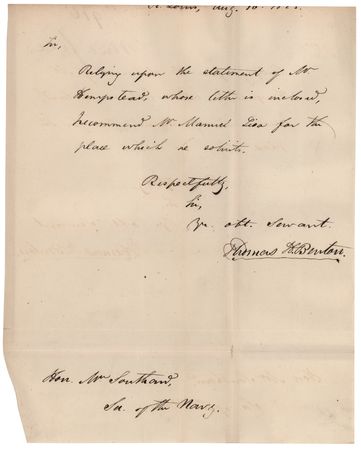 St. Louis, Aug. 18
Sir,
Relying upon the statement of Mr.
Hempstead, whose letter is inclosed,
I recommend Mr. Manuel Lisa for the
place which he solicits.
Respectfully,
Sir,
Yr. obt. Servant.
Thomas H. Benton.
Hon. Mr. Southard,
Sec. of the Navy.